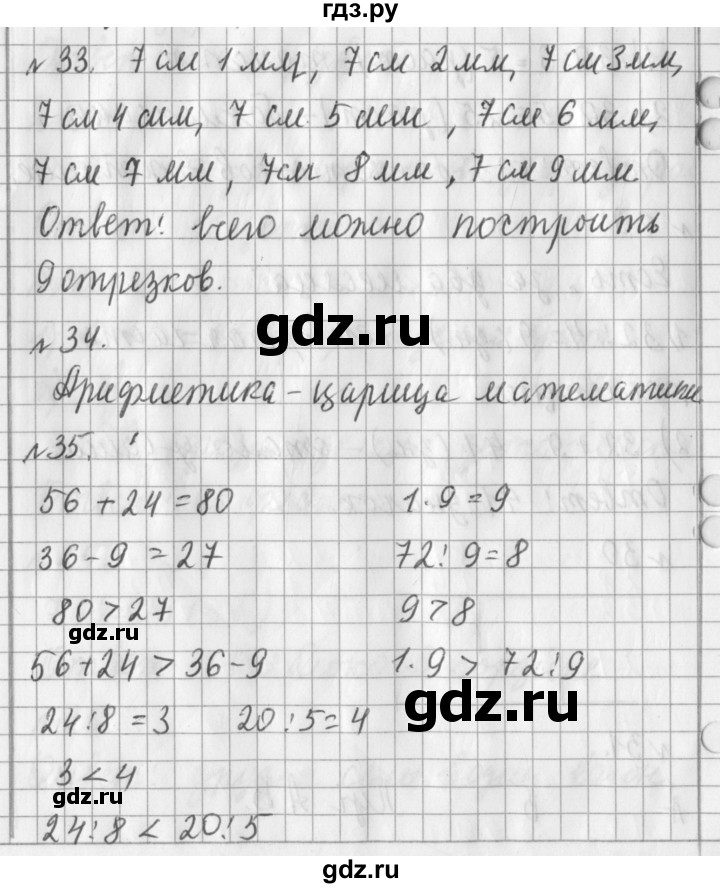 гдз.ру
№33. 7 см 1 мм, 7 см 2 мм, 7 см 3 мм,
7 см 4 мм, 7 см 5 мм, 7 см 6 мм,
7 см 7 мм, 7 см 8 мм, 7 см 9 мм.
Ответ: всего можно построить
9 отрезков.
gdz.ru
№34.
Арифметика - царица математики
№35.
56 + 24 = 80 1·9 = 9
36 - 9 = 27 72:9 = 8
80 > 27 9 > 8
gdz.ru
56 + 24 > 36 - 9 1·9 > 72:9
gdz.ru
24:8 = 3 20:5 = 4
3 < 4
gdz.ru
24:8 < 20:5
gdz.ru